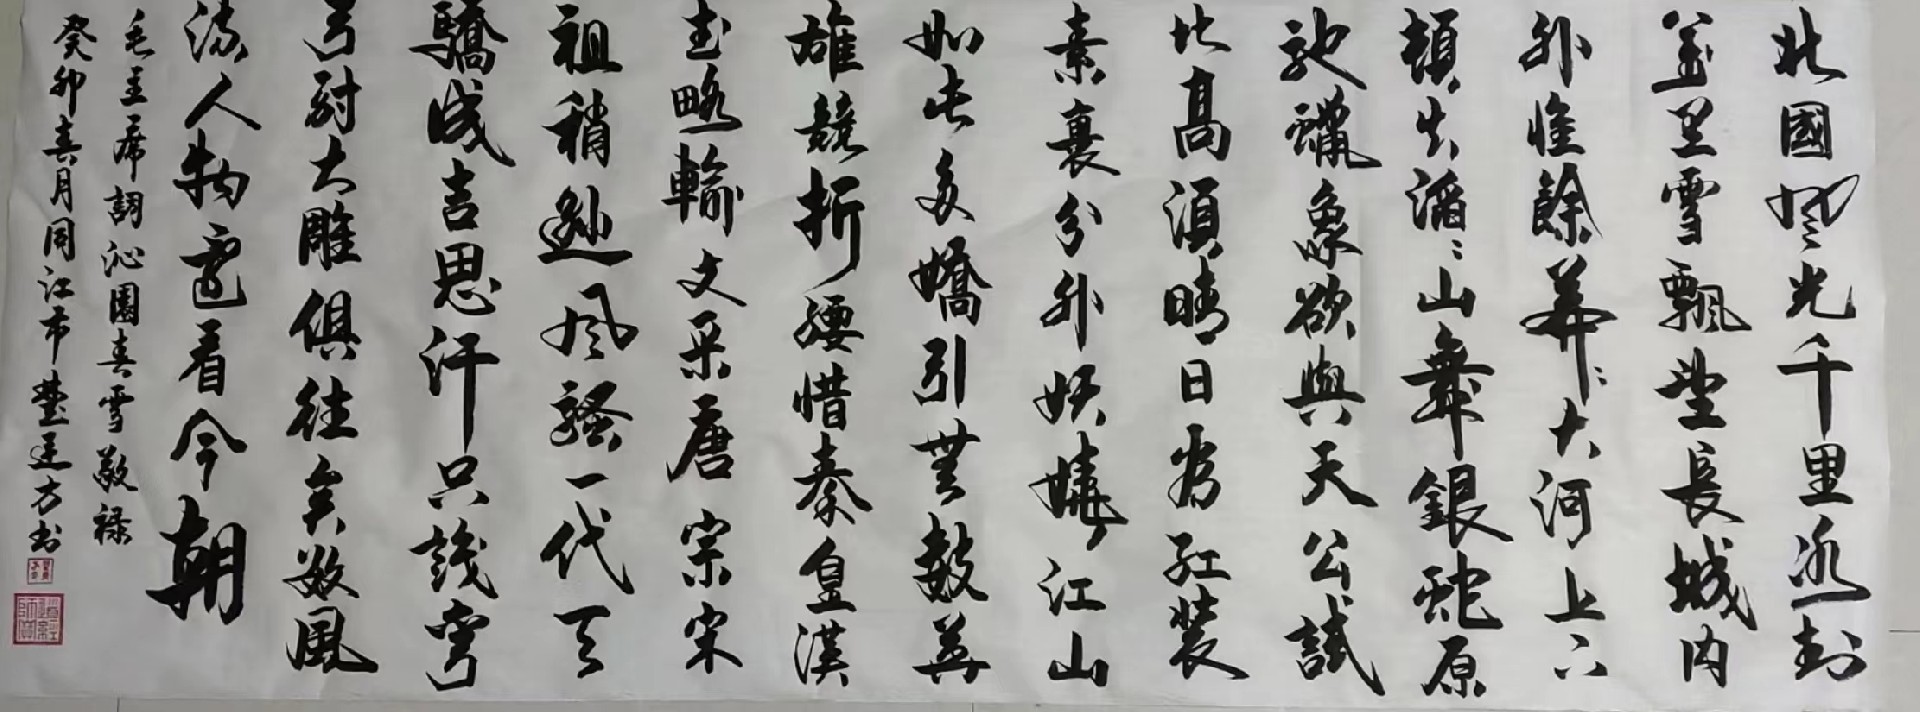 北國風光千里冰封
萬里雪飄望長城內
外惟餘莽〻大河上下
頓失滔〻山舞銀蛇原
馳蠟象欲與天公試
比高須晴日看紅裝
素裹分外妖嬈江山
如此多嬌引無數英
雄競折腰惜秦皇漢
武略輸文采唐宗宋
祖稍遜風騷一代天
驕成吉思汗只識彎
弓射大雕俱往矣數風
流人物還看今朝
毛主席詞沁園春雪敬祿
癸卯春月同江市楚廷方书